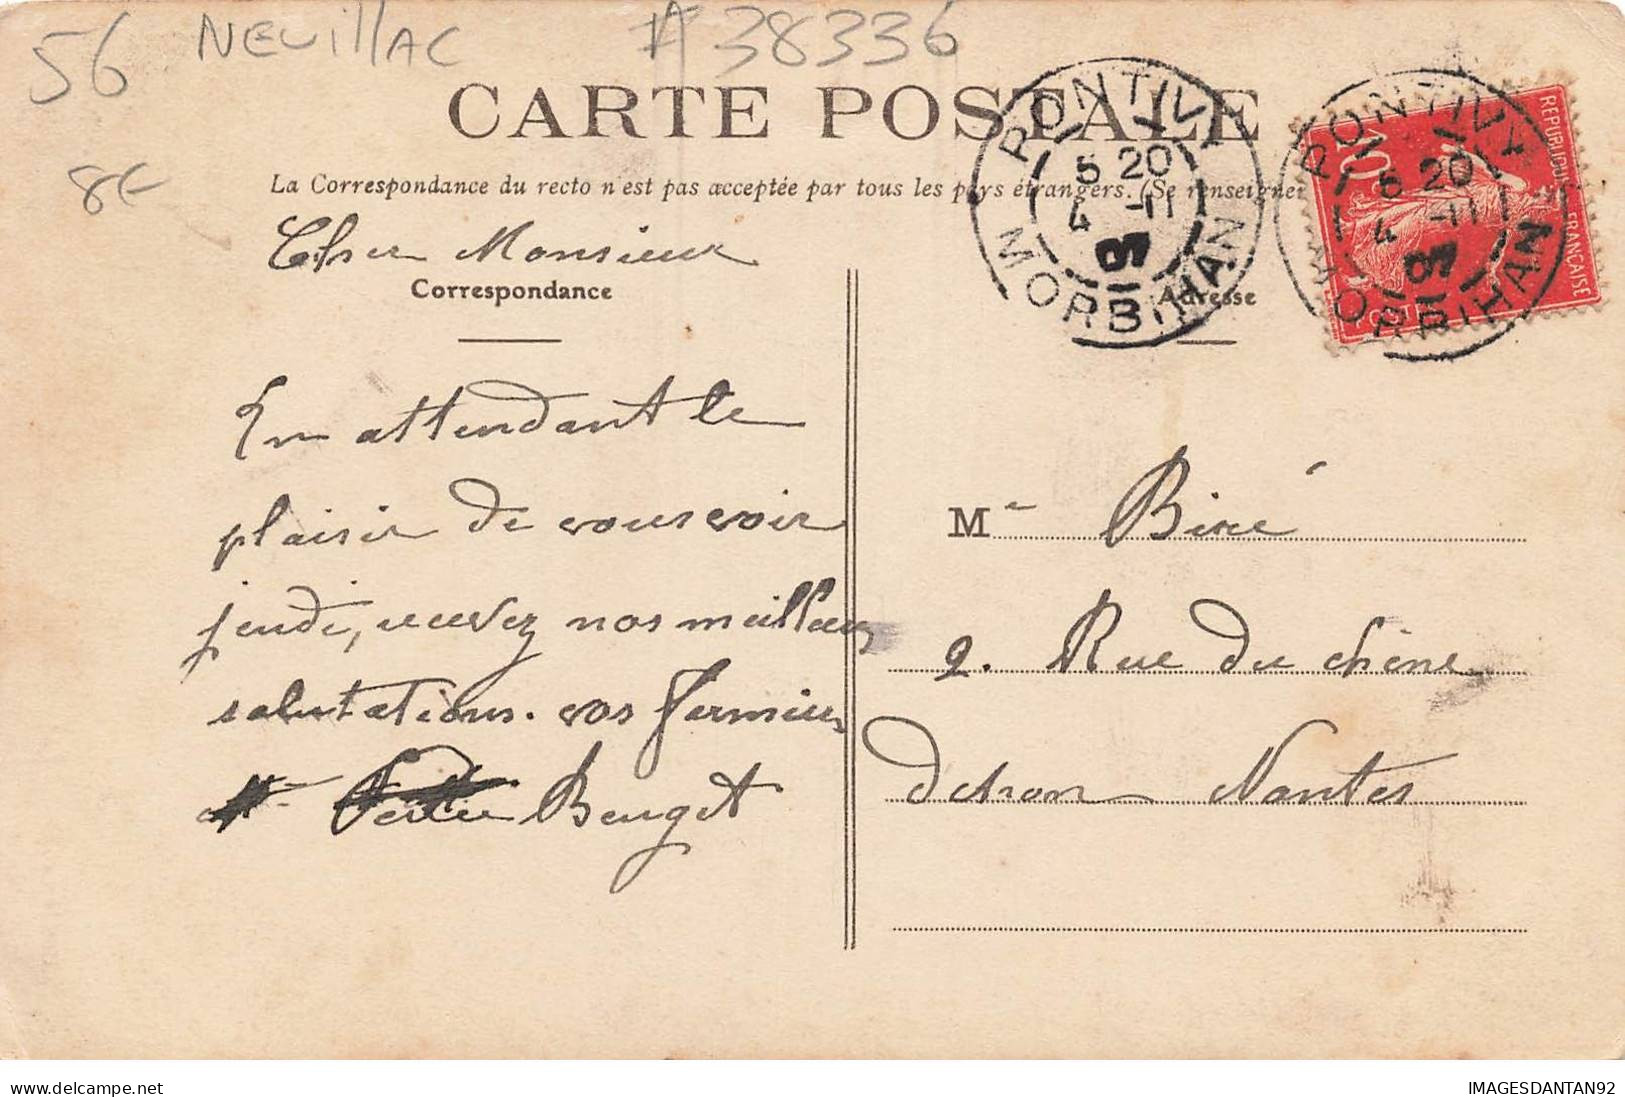 56 NEUILLAC #38336
8€
CARTE POSTALE
La Correspondance du recto n'est pas acceptée par tous les pays étrangers. (Se renseigner
Cher Monsieur
Correspondance
Adresse
En attendant le
plaisir de vous voir
jeudi, recevez nos meilleurs
salutations. vos fermiers
Benget
PONTIVY
5 20
4 -11
MORBIHAN
PONTIVY
5 20
4 -11
MORBIHAN
REPUBLIQUE FRANÇAISE
10
Mr Biré
2. Rue du chêne
daron Nantes
delcampe.net
IMAGESDANTAN92